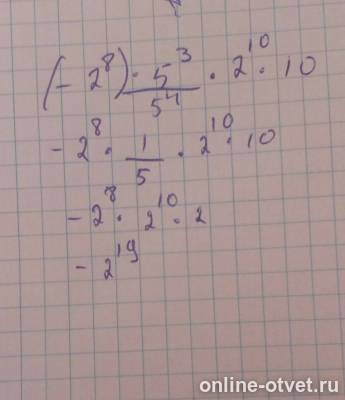 (-2⁸) · 5³/5⁴ · 2¹⁰ · 10
-2⁸ · 1/5 · 2¹⁰ · 10
-2⁸ · 2¹⁰ · 2
-2¹⁹
online-otvet.ru